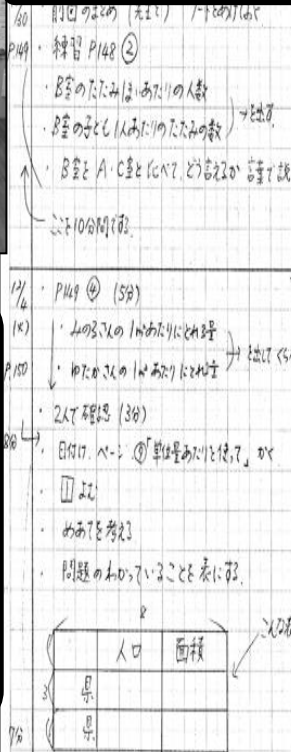 /30 前回のまとめ (先生と) ノートとめがけておく
P149 ・練習 P148 ②
・B室のたたみ1まいあたりの人数
・B室の子ども1人あたりのたたみの数 →を出す
・B室をA・C室とくらべて、どう言えるか 言葉で説
ここを10分間でする。
12/4 ・P149 ④ (5分)
(木) ・みのるさんの1m²あたりにとれる量
P.150 ・ゆたかさんの1m²あたりにとれる量 →を出して くら
・2人で確認 (3分)
8分 ・日付け、ページ ②「単位量あたりを使って」かく
・1 よむ
・めあてを考える
・問題のわかっていることを表にする。
8
こんな表
人口 面積
3 県
県
7分